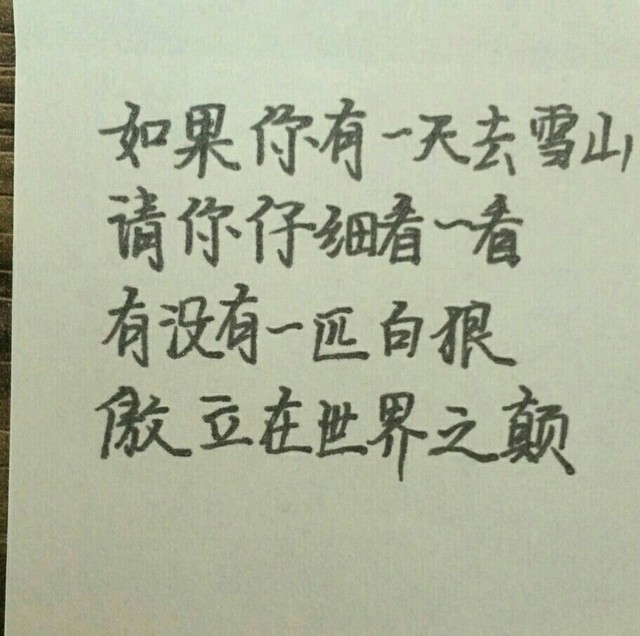 如果你有一天去雪山
请你仔细看一看
有没有一匹白狼
傲立在世界之颠